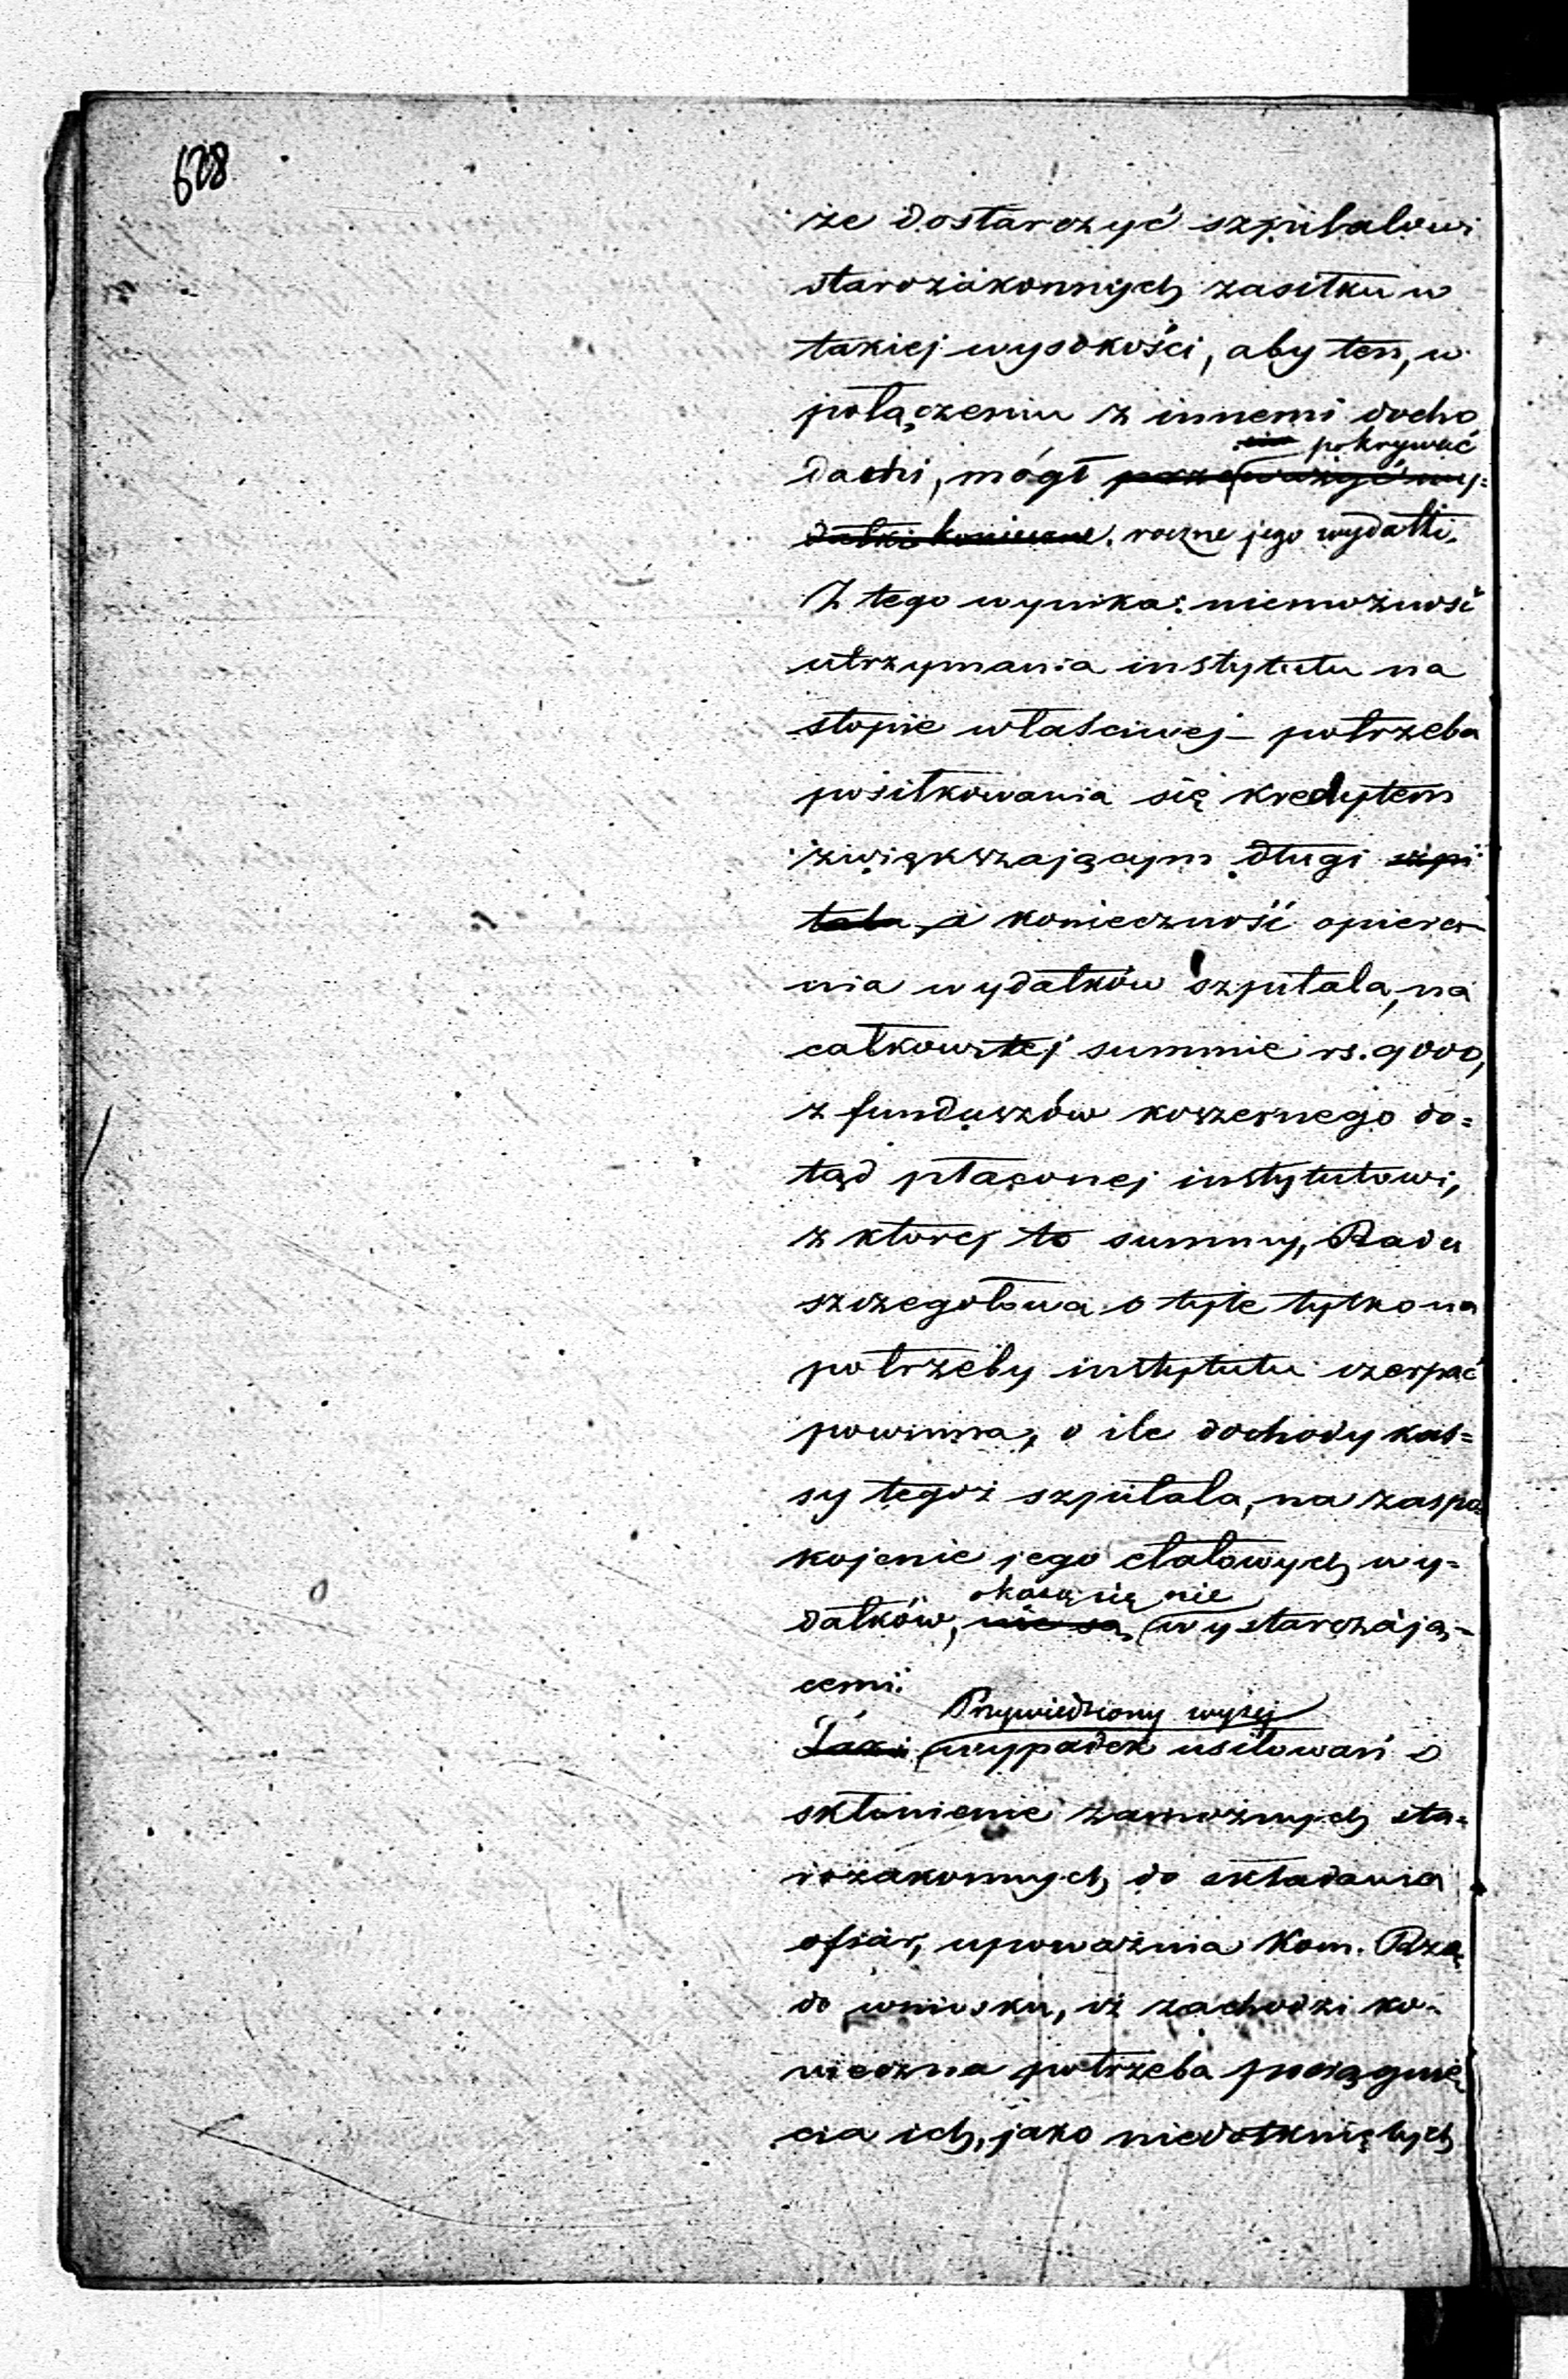 608
że dostarczyć szpitalowi
starozakonnych zasiłku w
takiej wysokości, aby ten, w
połączeniu z innemi docho
pokrywać
dachi, mógł przeważyć wy=
datki konieczne. roczne jego wydatki.
Z tego wynika: niemożność
utrzymania instytutu na
stopie właściwej – potrzeba
posiłkowania się kredytem
zwiększającym długi szpi
tala, a konieczność opiera-
nia wydatków szpitala, na
całkowitej summie rs. 9000,
z funduszów koszernego do=
tąd płaconej instytutowi,
z ktorej to summy, Rada
szczegołowa o tyle tylko na
potrzeby instytutu czerpać
powinna, o ile dochody kas=
sy tegoż szpitala, na zaspo
kojenie jego etatowych wy=
okażą się nie
datków, nie są wystarczają-
cemi.
Przywiedziony wyżej
Taki wypadek usiłowań o
skłonienie zamożnych sta=
rozakonnych do składania
ofiar, upoważnia Kom. Rzą
do wniosku, iż zachodzi ko-
nieczna potrzeba pociągnię
cia ich, jako niedotkniętych